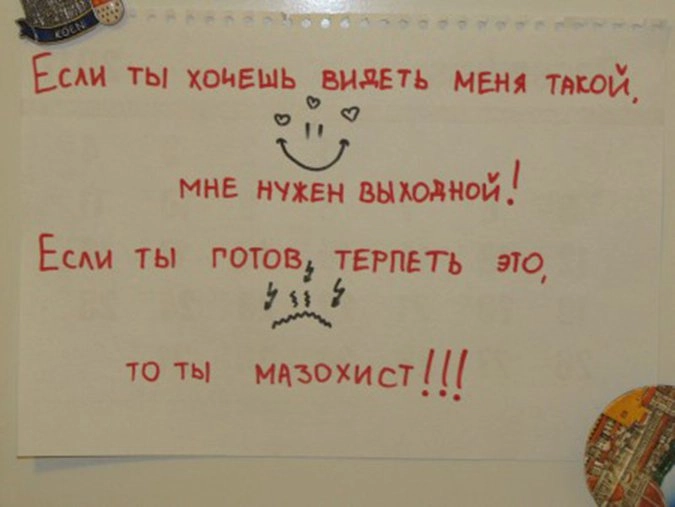 KOELN
Если ты хочешь видеть меня такой,
мне нужен выходной!
Если ты готов терпеть это,
то ты мазохист!!!